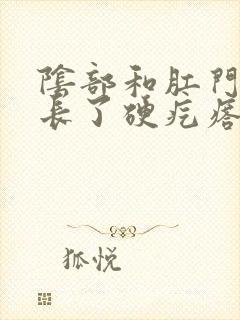 陰部和肛門
長了硬疙瘩
狐悦